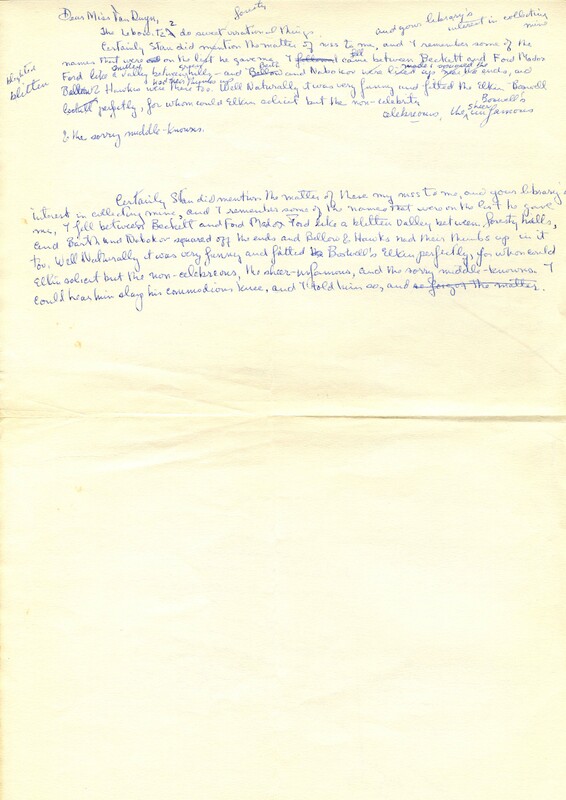 Dear Miss Van Duyn,
foresty
2
and your library's
interest in collecting
mine
do sweet vacational things.
Certainly Stan did mention the matter of mss to me, and I remember some of the
names that were on the list he gave me. I followed fell came between Beckett and Ford Madox
blighted
blitten
Ford like a valley between hills - and Barth and Nabokov were lined up the ends, and
Bellow & Hawkes were there too. Well Naturally it was very funny and fitted the Elkin-Boswell
had their thumbs up
perfectly, for whom could Elkin solicit but the non-celebrity
Boswell's
celebreous, the sheer infamous
& the sorry middle-knowns.
Certainly Stan did mention the matter of these my mss to me, and your library's
interest in collecting mine, and I remember some of the names that were on the list he gave
me, I fell between Beckett and Ford Madox Ford like a blitten valley between foresty hills,
and Barth and Nabokov squared off the ends and Bellow & Hawks had their thumbs up in it
too. Well Naturally it was very funny and fitted the Boswell's Elkin perfectly, for whom could
Elkin solicit but the non-celebreous, the sheer-infamous, and the sorry middle-knowns. I
could hear him slap his commodious knee, and I told him so, and so forgot the matter.